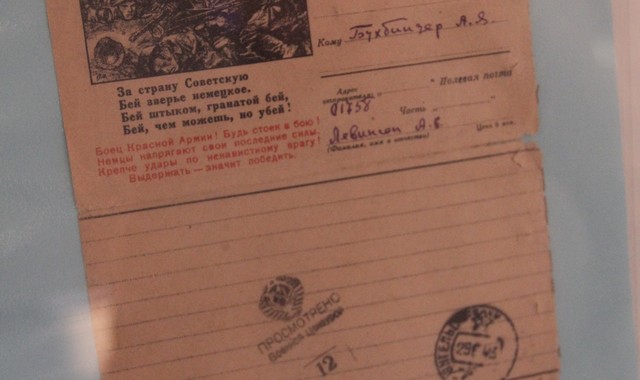 Кому Бухбиндер А.Я.
За страну Советскую
Бей зверье немецкое.
Бей штыком, гранатой бей,
Бей, чем можешь, но убей!
Боец Красной Армии! Будь стоек в бою!
Немцы напрягают свои последние силы.
Крепче удары по ненавистному врагу!
Выдержать — значит победить.
Адрес " Полевая почта
01758 Часть
Левинсон А.
(Фамилия, имя и отчество) Цена
ПРОСМОТРЕНО
Военной Цензурой
12